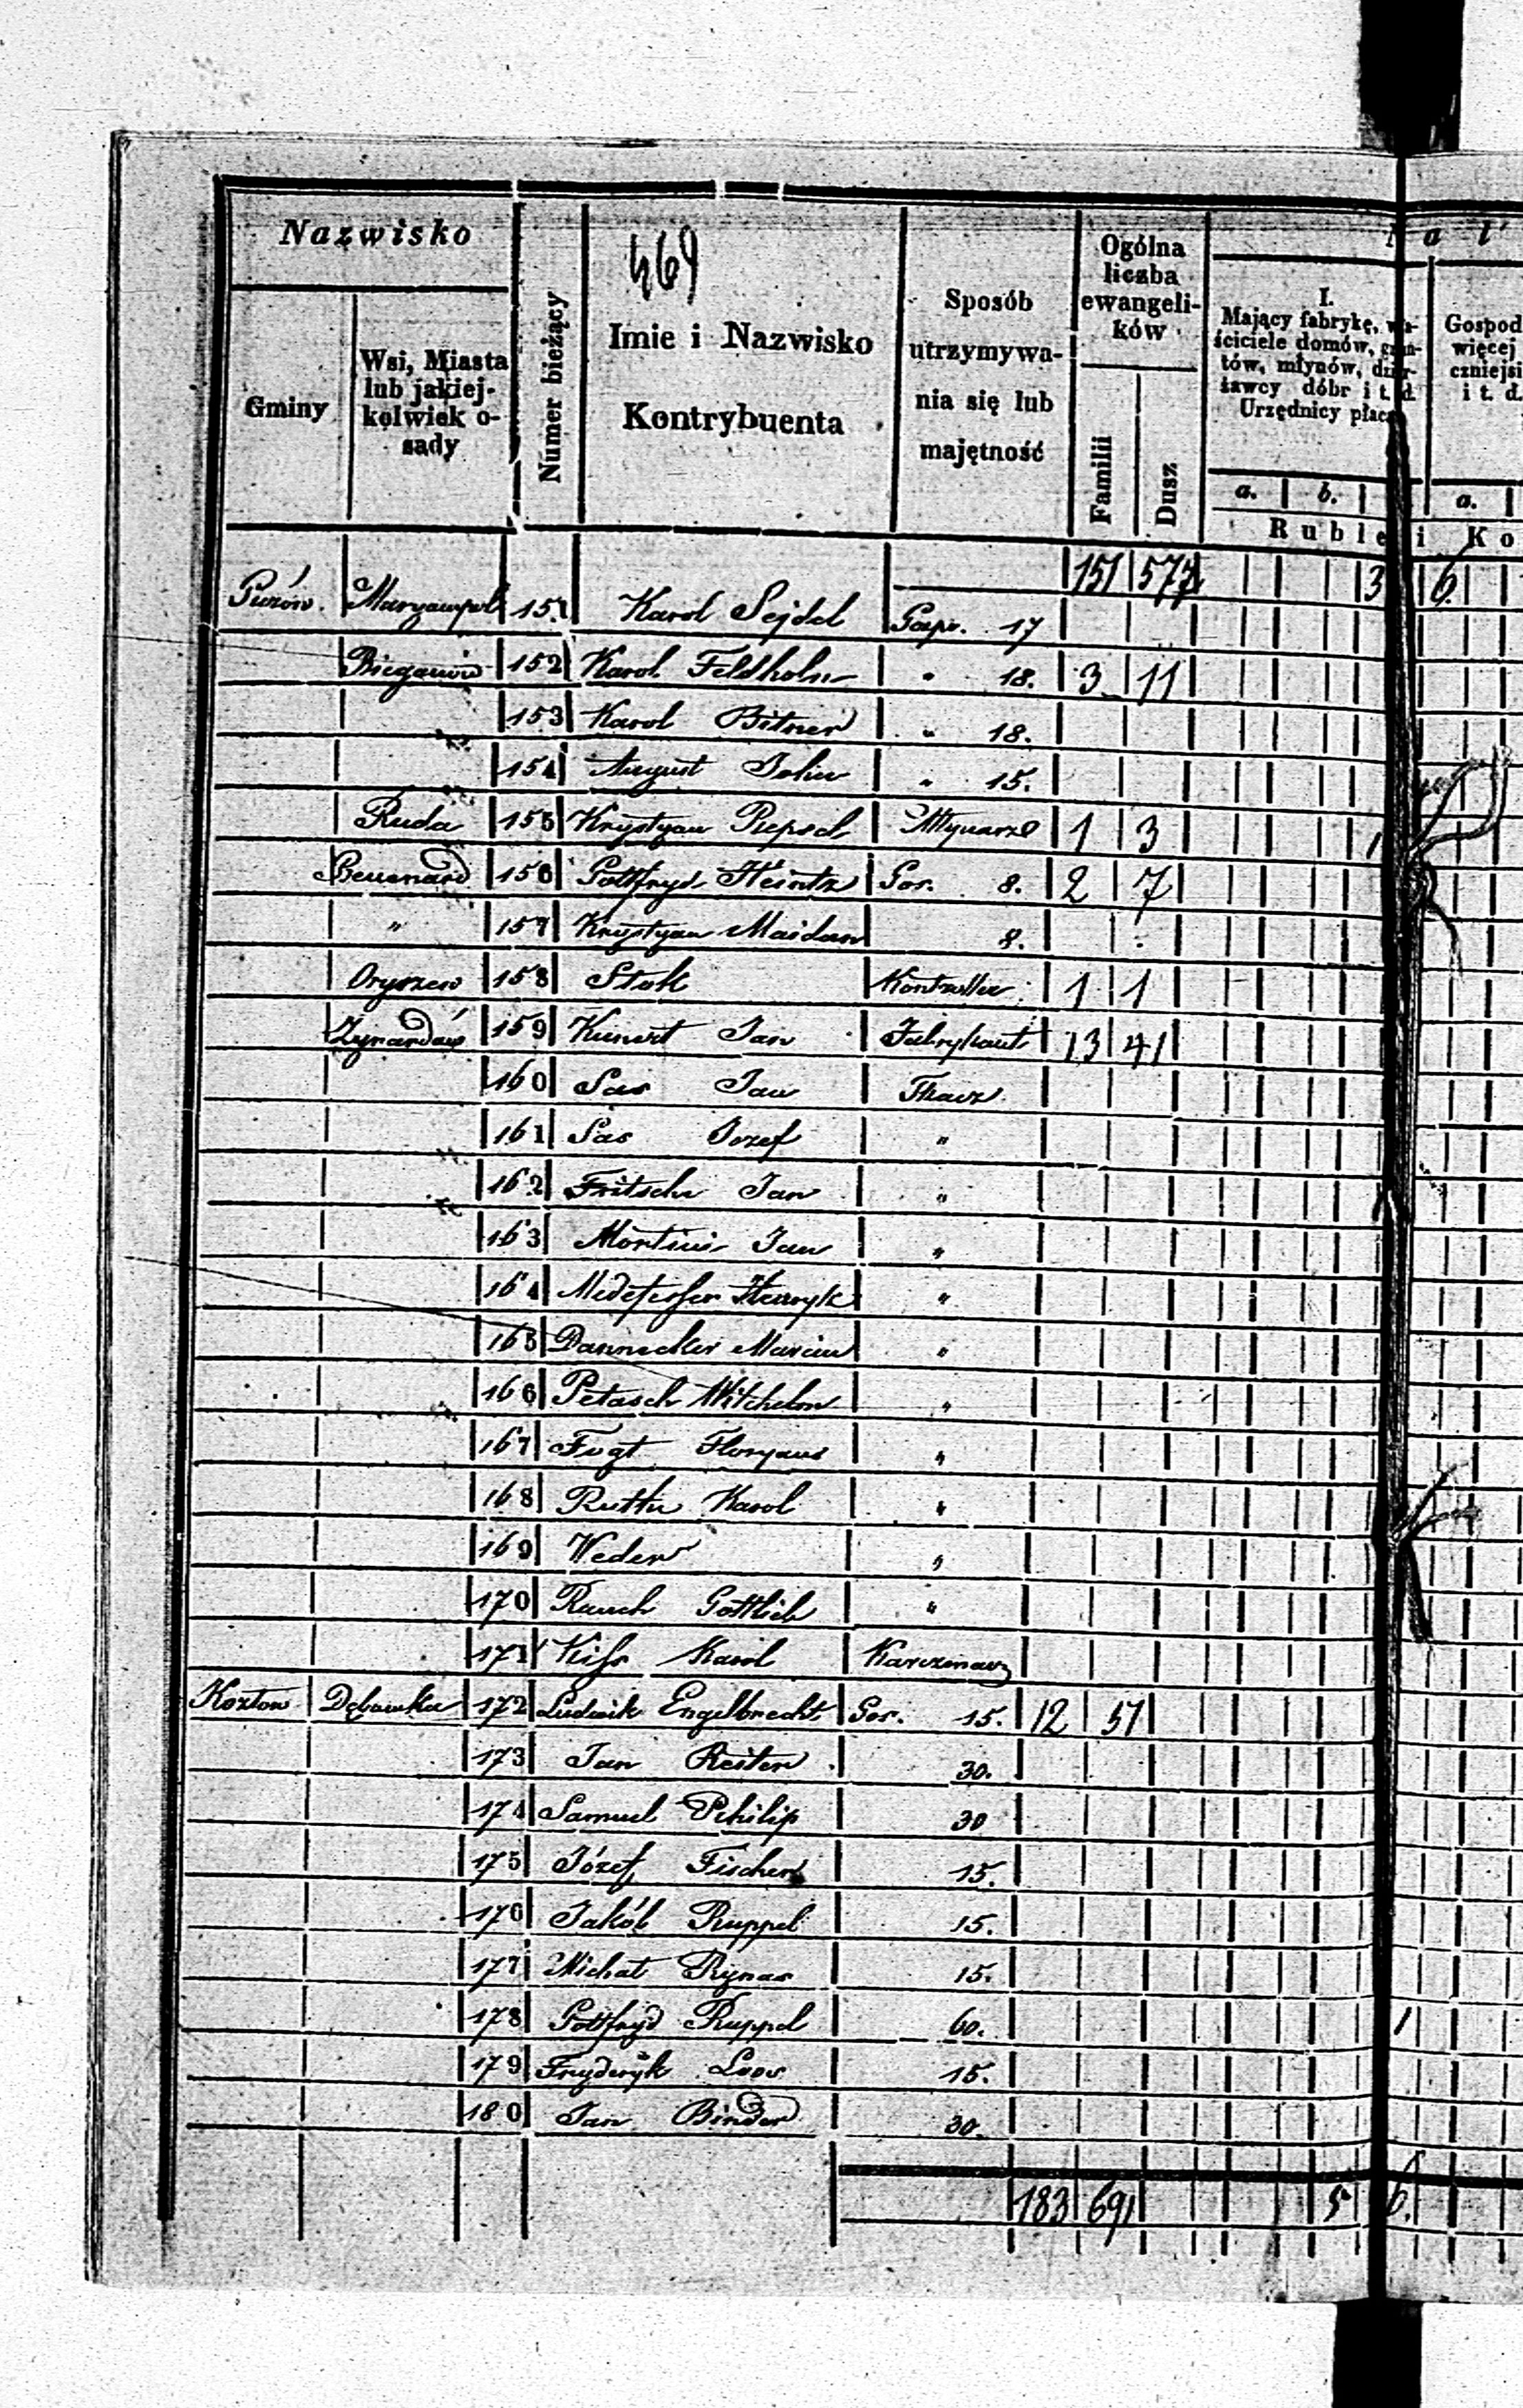 Nazwisko
Gminy
Wsi, Miasta
lub jakiej-
kolwiek o-
sady
Numer bieżący
469
Imie i Nazwisko
Kontrybuenta
Sposób
utrzymywa-
nia się lub
majętność
Ogólna
liczba
ewangeli-
ków
Familii
Dusz
I.
Mający fabrykę, wła-
ściciele domów, grun-
tów, młynów, dzier-
żawcy dóbr i t. d.
Urzędnicy płacą
a. b.
Gospod
więcej
czniejsi
i t. d.
a.
Ruble i Ko
151 577 3 6.
Guzów. Maryampol 151 Karol Sejdel Gospo. 17
Bieganów 152 Karol Feldhohn " 18. 3 11
153 Karol Bitner " 18.
154 August John " 15.
Ruda 155 Krystyan Piepsch Młynarz 1 3 1
Benenard 156 Gottfryd Heintz Gos. 8. 2 7
" 157 Krystyan Maidan 8.
Oryszew 158 Stok Kontroller 1 1
Żyrardów 159 Kunert Jan Fabrykant 13 41
160 Sas Jan Tkacz
161 Sas Jozef "
162 Fritsche Jan "
163 Jan "
164 Henryk "
165 Dannecker Marcin "
166 Petasch "
167 Fugt Floryan "
168 Karol "
169 Weder "
170 Rauch Gottlieb "
171 Kiss Karol Karczmarz
Kozłow Dębowka 172 Ludwik Engelbrecht Gos. 15. 12 51
173 Jan Reiter 30.
174 Samuel Philip 30
175 Józef Fischer 15.
176 Jakób Ruppel 15.
177 Michał Rynas 15.
178 Gottfryd Ruppel 60. 1
179 Fryderyk Loos 15.
180 Jan Binder 30.
183 691 5 6.